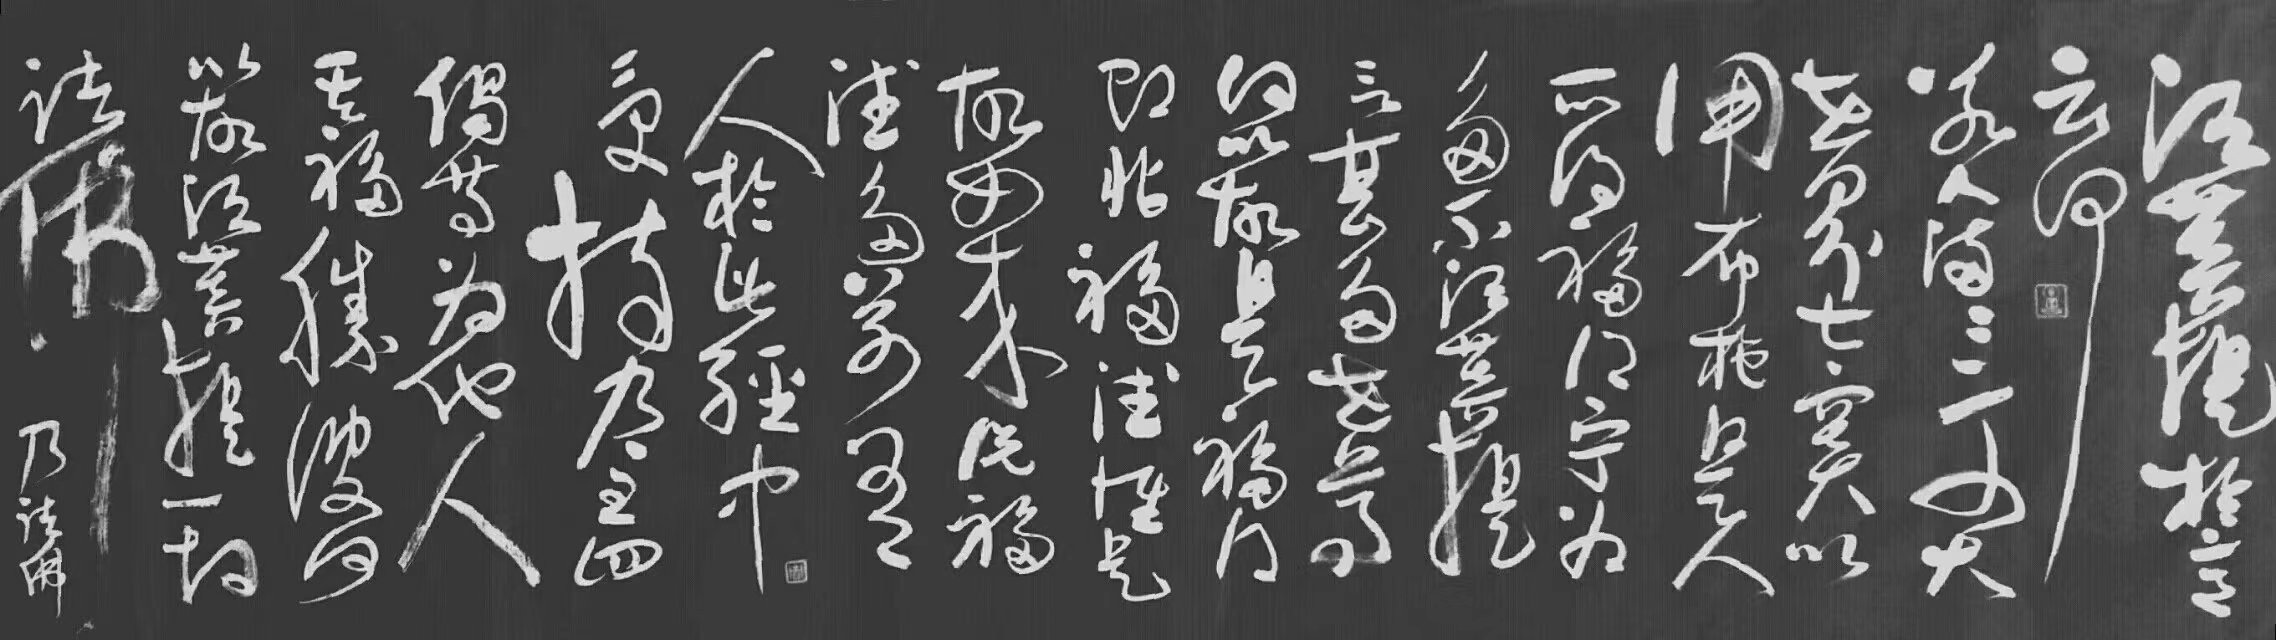 須菩提於意
云何
若人滿三千大千
世界七寶以
用布施是人
所得福德寧為
多不須菩提
言甚多世尊
何以故是福德
即非福德性是
故如來說福
德多若復有
人於此經中
受持乃至四
偈等為他人
其福勝彼何
以故須菩提一切
諸佛乃諸佛